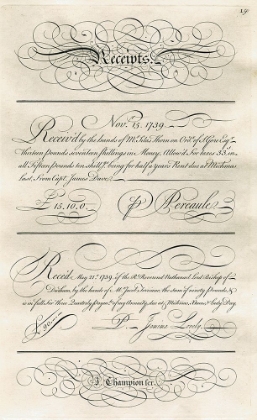 19
Receipts.
Nov.r 15. 1739.
Receiv'd by the hands of Mr. Silis Thom on Ord.r of Esq.r
Thirteen pounds seventeen shillings in Money, Allow'd for taxes 33.s in
all Fifteen Pounds ten shill.s being for half a years Rent due at Mich'mas
last, From Capt. James Dave
£15.10.0 P Percaule
Receiv'd May 21.st 1739 of the R.t Reverend Nathanael Lord Bishop of
Durham, by the hands of Mr. the sum of ninety Pounds, &
is in full for Three Quarterly paym.ts of my Annuity, due at & Lady Day
£90 P James Lively
J. Champion scr.